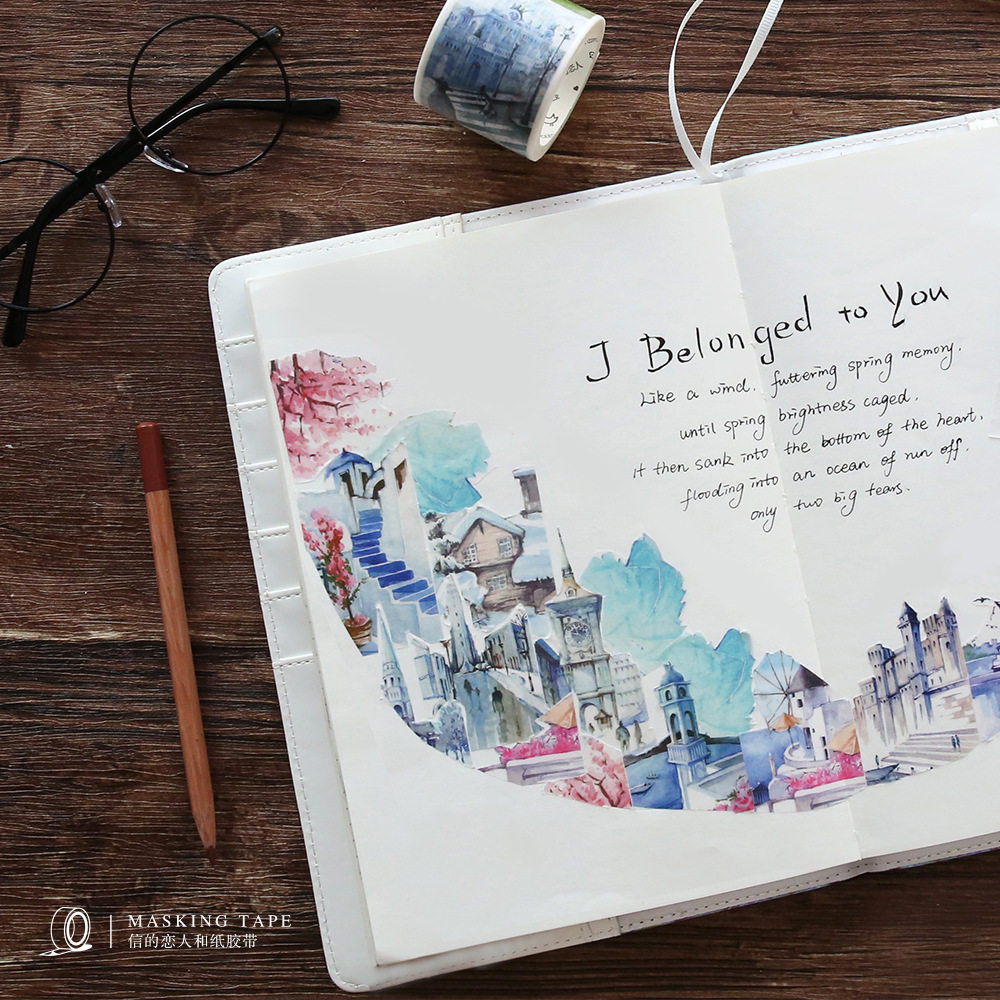 I Belonged to You
Like a wind. futtering spring memory.
until spring brightness caged.
it then sank into the bottom of the heart.
flooding into an ocean of run off.
only two big tears.
MASKING TAPE
信的恋人和纸胶带